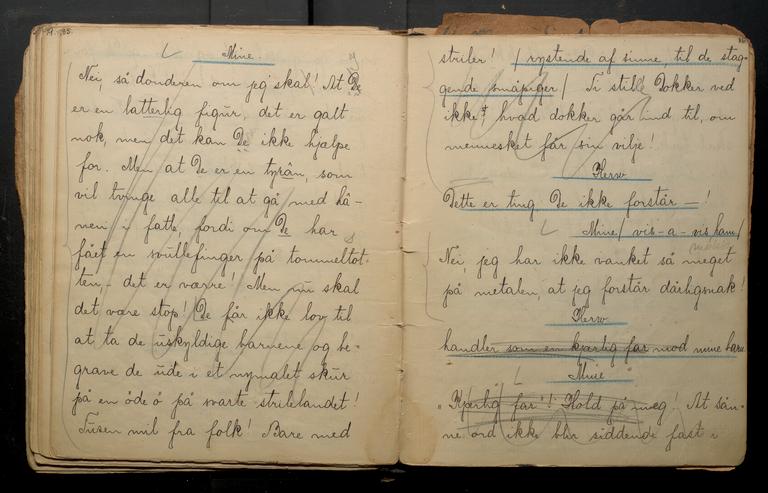 Mine.
Nei, så donderen om jeg skal! At De
er en latterlig figur, det er galt
nok, men det kan De ikke hjælpe
for. Men at De er en tyrån, som
vil tvinge alle til at gå med hå-
nen i fatle, fordi om De har
fået en svullefinger på tommeltot-
ten – det er værre! Men nu skal
det være stop! De får ikke lov til
at ta de uskyldige barnene og be-
grave de ude i et nymalet skur
på en øde ø på svarte strilelandet!
Tusen mil fra folk! Bare med
striler! / rystende af sinne, til de stag-
gende småpiger / Ti still! Dokker ved
ikke hvad dokker går ind til, om
mennesket får sin vilje!
Herw
Dette er ting De ikke forstår –!
Mine / vis-a-vis ham /
Nei, jeg har ikke vanket så meget
på metalen, at jeg forstår dårligsnak!
Herw
handler som en kjærlig far mod mine barn
Mine
"Kjærlig far"! Hold på meg! At sån-
ne ord ikke blir siddende fast i